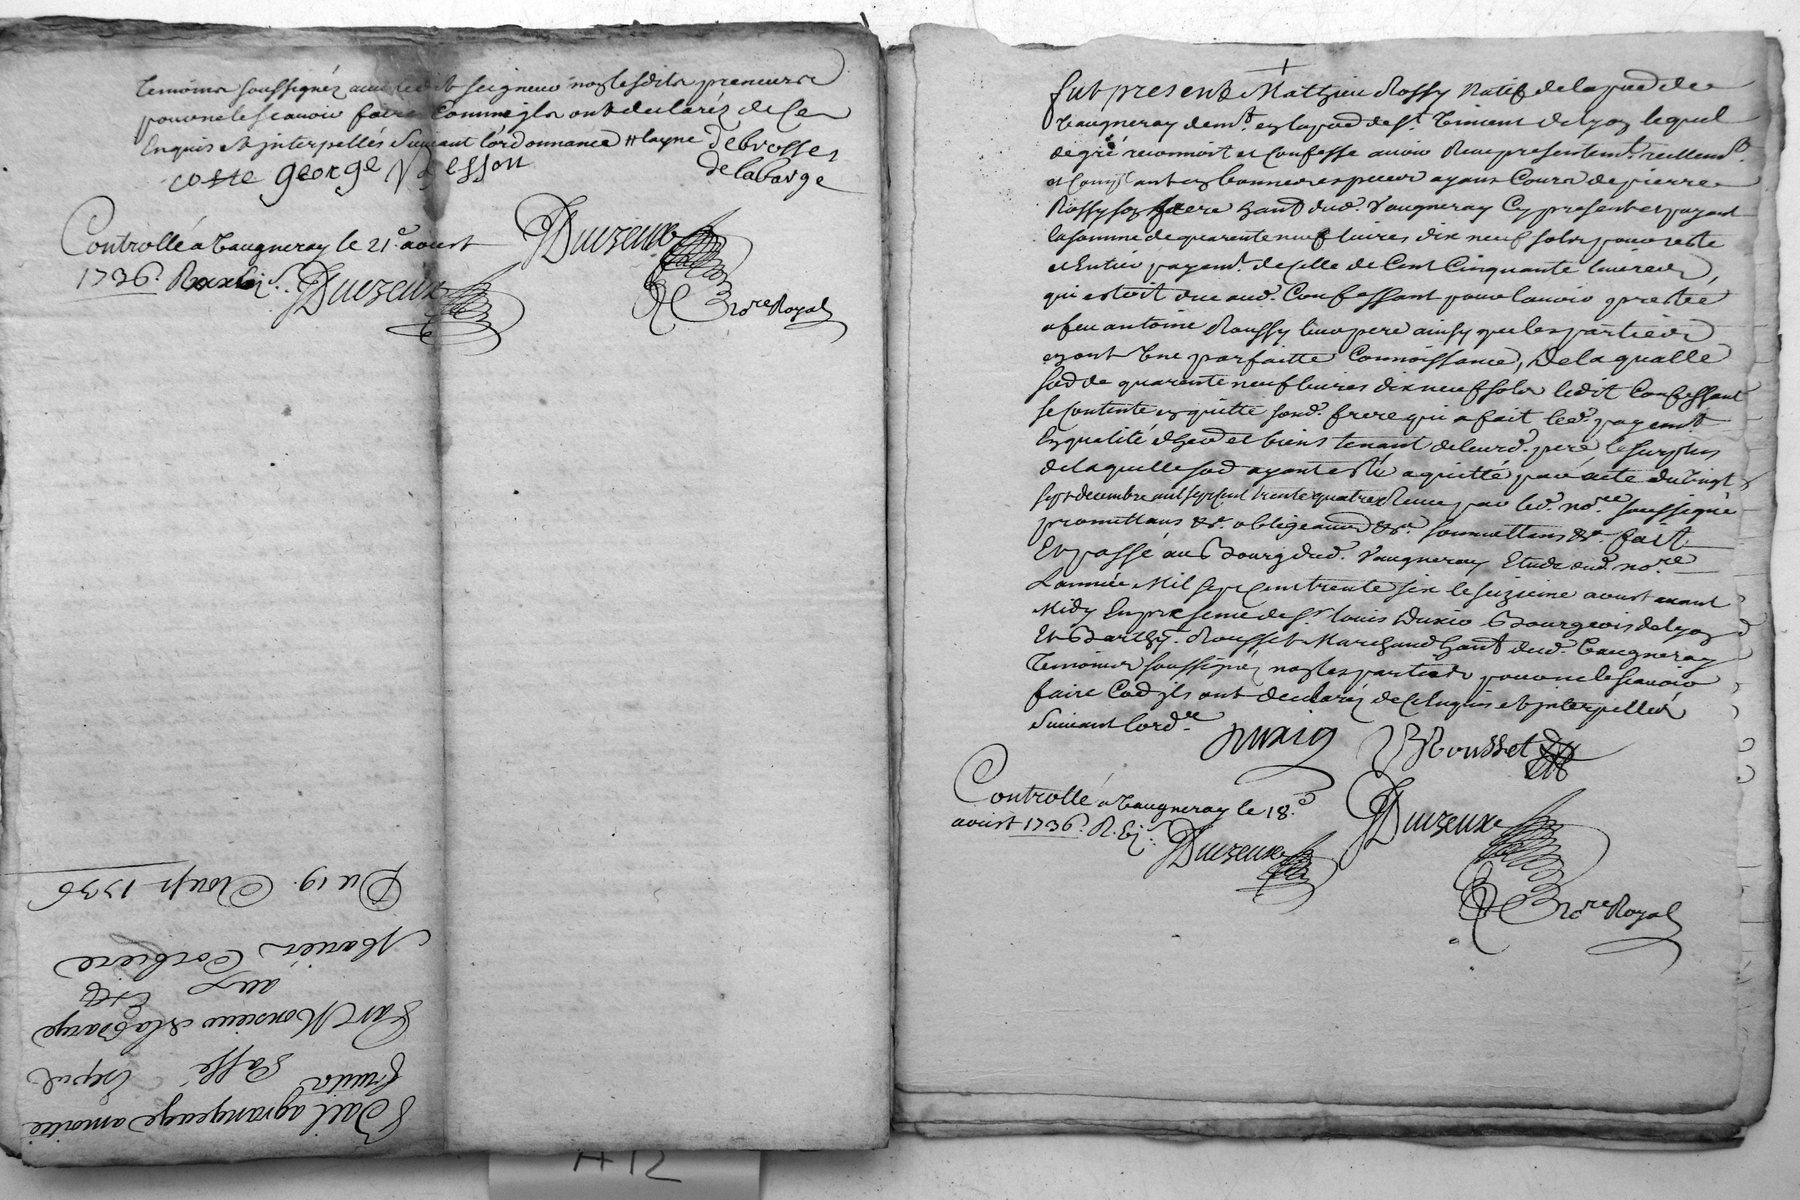 temoins soussignéz avec ledit seigneur non lesdits preneurs
pour ne le scavoir faire comme ils ont declaréz de ce
Enquis et interpellés suivant l'ordonnance layne Debrosses
coste george delabarge
Controllé a Vaugneray le 21e aoust
1736. R Duizeux
Duizeux
No.re Royal
Bail a grangeage a moitié
fruits Passé
Par Monsieur delabarge
aux
Mariés Corbiere
Du 19. Aoust 1736
fut present Mathieu Rossy natif de la p.sse de
Vaugneray dem.t en la p.sse de St. Vincent de Lyon lequel
de gré reconnoit et confesse avoir Receu presentem.t reellem.t
et Comptant en bonnes especes ayant Cours de pierre
Rossy son frere hant dud. Vaugneray Cy present et payant
la somme de quarente neuf livres dix neuf sols pour reste
et Entier payem.t de celle de Cent Cinquante livres
qui estoit due aud. Confessant pour l'avoir presté
a feu antoine Roussy leur pere ainsy que les parties
en ont Une parfaitte Connoissance, De laqualle
so.e de quarente neuf livres dix neuf sols ledit Confessant
se contente en quitte sond. frere qui a fait led. payem.t
En qualité d'her et biens tenant de leurd. pere le surplus
de laquelle so.e ayant esté aquitté par acte du Vingt
sept decembre mil sept cent trente quatre Receu par led. no.re soussigné
promettans &c. obligeans &c. soumettans &c. fait
Et passé au Bourg dud. Vaugneray Etude dud. no.re
L'année Mil sept Cent trente six le seizieme aoust avant
Midy En presence de Sr. Louis Bourgeois de Lyon
Et Barthy. Rousset Marchand hant dud. Vaugneray
temoins soussignéz non les parties pour ne le scavoir
faire Co.e ils ont declaréz de ce Enquis et interpellés
Suivant l'ord.ce
B Rousset
Controllé a Vaugneray le 18.e
aoust 1736. R. Duizeux
Duizeux
No.re Royal
A 12